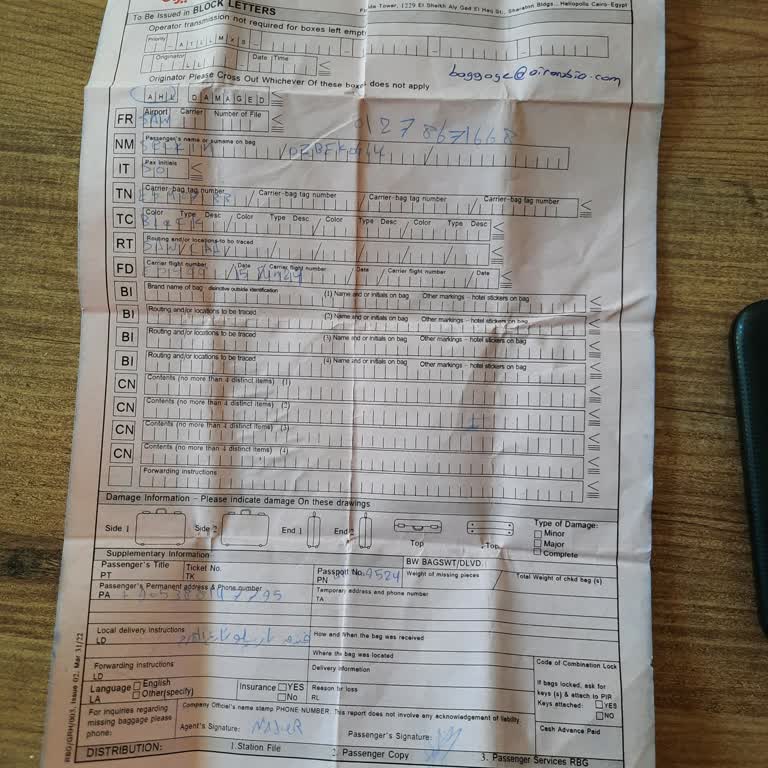 To Be Issued in BLOCK LETTERS
Plaza Tower, 1229 El Sheikh Aly Gad El Haq St., Sheraton Bldgs., Heliopolis Cairo-Egypt
Operator transmission not required for boxes left empty
Priority
Originator Date Time
baggage@airarabia.com
Originator Please Cross Out Whichever Of these boxes does not apply
AHL DAMAGED
FR Airport Carrier Number of File
01278671668
NM Passenger's name or surname on bag
IT Pax Initials
TN Carrier-bag tag number / Carrier-bag tag number / Carrier-bag tag number / Carrier-bag tag number
TC Color Type Desc / Color Type Desc / Color Type Desc / Color Type Desc
RT Routing and/or locations to be traced
FD Carrier flight number / Date Carrier flight number / Date Carrier flight number / Date
BI Brand name of bag distinctive outside identification (1) Name and or initials on bag Other markings - hotel stickers on bag
BI Routing and/or locations to be traced (2) Name and or initials on bag Other markings - hotel stickers on bag
BI Routing and/or locations to be traced (3) Name and or initials on bag Other markings - hotel stickers on bag
BI Routing and/or locations to be traced (4) Name and or initials on bag Other markings - hotel stickers on bag
CN Contents (no more than 4 distinct items) (1)
CN Contents (no more than 4 distinct items) (2)
CN Contents (no more than 4 distinct items) (3)
CN Contents (no more than 4 distinct items) (4)
Forwarding instructions
Damage Information - Please indicate damage On these drawings
Side 1 Side 2 End 1 End 2 Top Top
Type of Damage:
Minor
Major
Complete
Supplementary Information
Passenger's Title PT
Ticket No. TK
Passport No. PN
BW BAGSWT/DLVD
Weight of missing pieces / Total Weight of chkd bag (s)
Passenger's Permanent address & Phone number
PA
Temporary address and phone number
TA
Local delivery instructions
LD
How and When the bag was received
Where the bag was located
Forwarding instructions
LD
Delivery information
Code of Combination Lock
If bags locked, ask for keys (s) & attach to PIR
Keys attached: YES
NO
Language English
LA Other(specify)
Insurance YES
No
Reason for loss
RL
For inquiries regarding missing baggage please phone:
Company Official's name stamp PHONE NUMBER. This report does not involve any acknowledgement of liability
Agent's Signature: NADER
Passenger's Signature:
Cash Advance Paid
DISTRIBUTION: 1.Station File 2. Passenger Copy 3. Passenger Services RBG
RBG/GRH/003, Issue 02, Mar 31/22